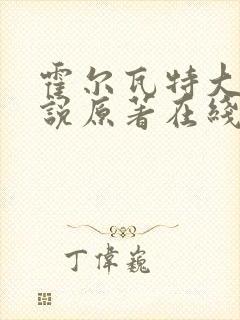 霍尔瓦特大
說原著在綫
丁偉巍